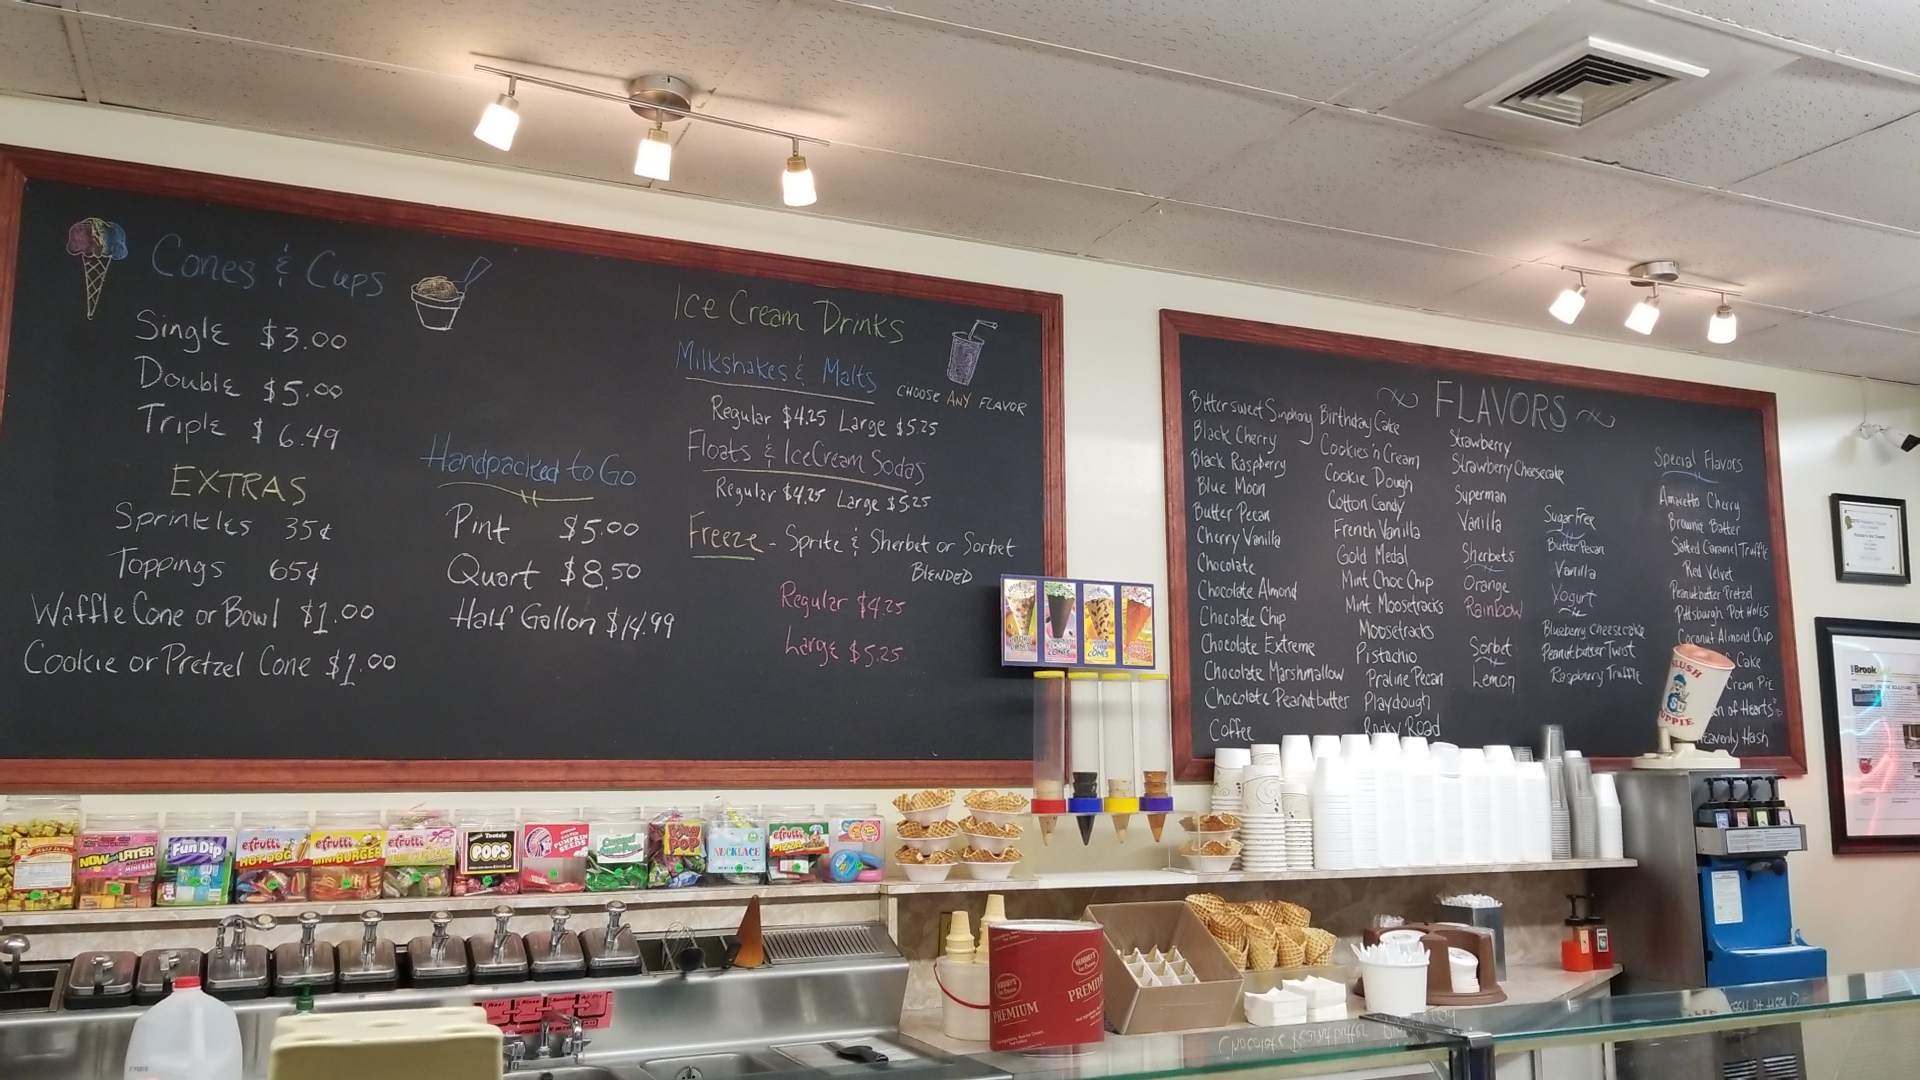 Cones & Cups
Single $3.00
Double $5.00
Triple $6.49
EXTRAS
Sprinkles 35¢
Toppings 65¢
Waffle Cone or Bowl $1.00
Cookie or Pretzel Cone $1.00
Handpacked to Go
Pint $5.00
Quart $8.50
Half Gallon $14.99
Ice Cream Drinks
Milkshakes & Malts
CHOOSE ANY FLAVOR
Regular $4.25 Large $5.25
Floats & IceCream Sodas
Regular $4.25 Large $5.25
Freeze - Sprite & Sherbet or Sorbet
BLENDED
Regular $4.25
Large $5.25
FLAVORS
Bittersweet Sinphony
Black Cherry
Black Raspberry
Blue Moon
Butter Pecan
Cherry Vanilla
Chocolate
Chocolate Almond
Chocolate Chip
Chocolate Extreme
Chocolate Marshmallow
Chocolate Peanutbutter
Coffee
Birthday Cake
Cookies'n Cream
Cookie Dough
Cotton Candy
French Vanilla
Gold Medal
Mint Choc Chip
Mint Moosetracks
Moosetracks
Pistachio
Praline Pecan
Playdough
Rocky Road
Strawberry
Strawberry Cheesecake
Superman
Vanilla
Sherbets
Orange
Rainbow
Sorbet
Lemon
Sugar Free
Butter Pecan
Vanilla
Yogurt
Blueberry cheesecake
Peanutbutter Twist
Raspberry Truffle
Special Flavors
Amaretto Cherry
Brownie Batter
Salted Caramel Truffle
Red Velvet
Peanutbutter Pretzel
Pittsburgh Pot Holes
Coconut Almond Chip
Cake
Cream Pie
of Hearts
Heavenly Hash
SLUSH
PUPPIE
Brook
NOW and LATER
Fun Dip
efrutti
HOT DOG
efrutti
MINI BURGER
efrutti
Tootsie
POPS
PUMPKIN
SEEDS
Ring
POP
NECKLACE
efrutti
HERSHEY'S
Ice Cream
PREMIUM
HERSHEY'S
Ice Cream
PREMIUM